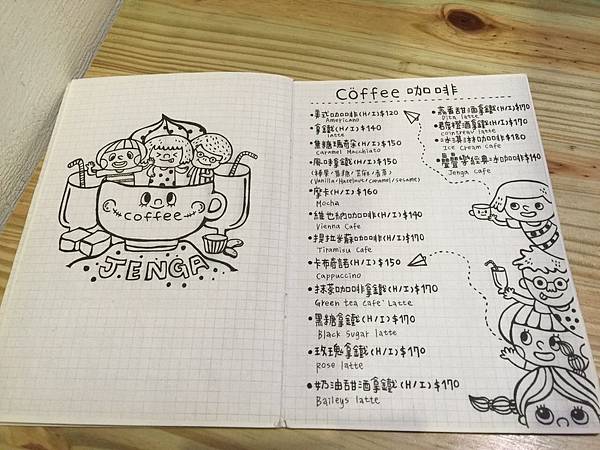 coffee
JENGA
Coffee 咖啡
•美式咖啡(H/I)$120
Americano
•拿鐵(H/I)$140
latte
•焦糖瑪奇朵(H/I)$150
Caramel Macchiato
•風味拿鐵(H/I)$150
(Vanilla/Hazelnut/caramel/sesame)
•摩卡(H/I)$160
Mocha
•維也納咖啡(H/I)$140
Vienna Cafe
•提拉米蘇咖啡(H/I)$170
Tiramisu Cafe
•卡布奇諾(H/I)$150
Cappuccino
•抹茶咖啡拿鐵(H/I)$170
Green tea cafe' Latte
•黑糖拿鐵(H/I)$170
Black Sugar latte
•玫瑰拿鐵(H/I)$170
rose latte
•奶油甜酒拿鐵(H/I)$170
Baileys latte
甜酒拿鐵$170
Dita latte
•君度橙酒拿鐵$170
cointreau latte
•冰淇淋咖啡$180
Ice Cream cafe
•疊疊樂經典冰咖啡$140
Jenga cafe